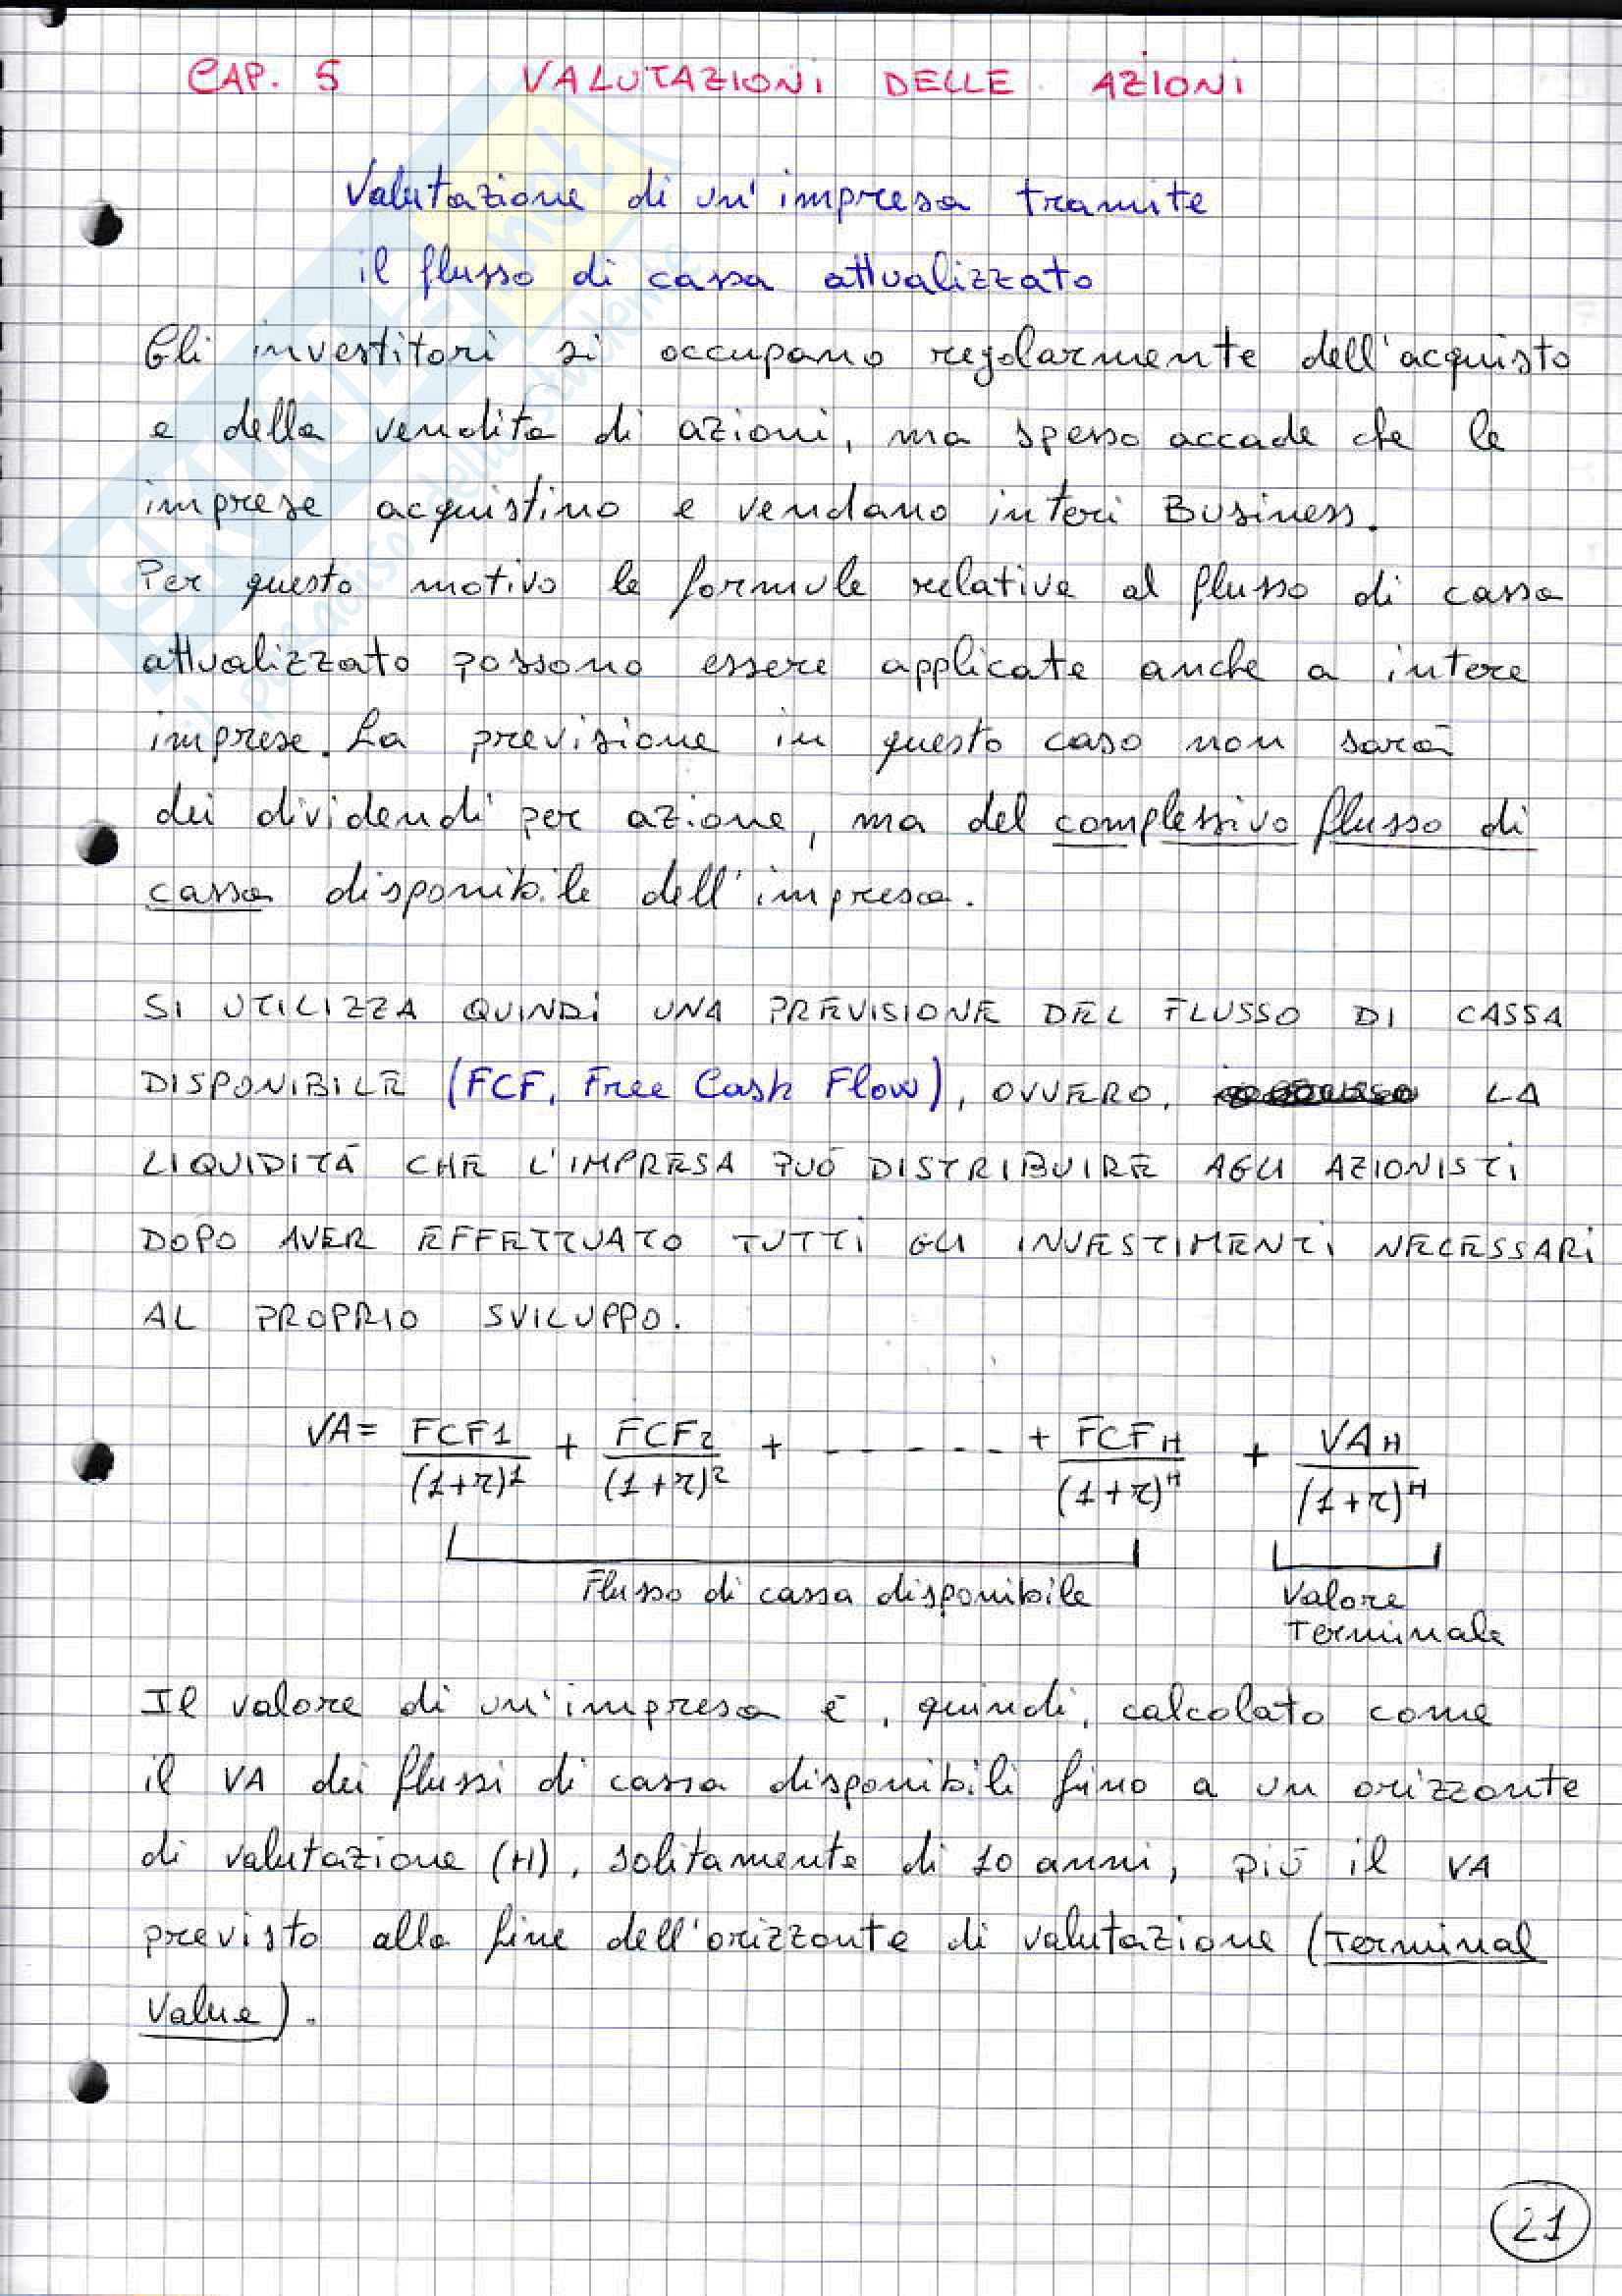 CAP. 5 VALUTAZIONI DELLE AZIONI
Valutazione di un'impresa tramite
il flusso di cassa attualizzato
Gli investitori si occupano regolarmente dell'acquisto
e della vendita di azioni, ma spesso accade che le
imprese acquistino e vendano interi Business.
Per questo motivo le formule relative al flusso di cassa
attualizzato possono essere applicate anche a intere
imprese. La previsione in questo caso non sarà
dei dividendi per azione, ma del complessivo flusso di
cassa disponibile dell'impresa.
SI UTILIZZA QUINDI UNA PREVISIONE DEL FLUSSO DI CASSA
DISPONIBILE (FCF, Free Cash Flow), OVVERO, LA
LIQUIDITÀ CHE L'IMPRESA PUÒ DISTRIBUIRE AGLI AZIONISTI
DOPO AVER EFFETTUATO TUTTI GLI INVESTIMENTI NECESSARI
AL PROPRIO SVILUPPO.
VA = FCF1/(1+r)^1 + FCF2/(1+r)^2 + ------ + FCFH/(1+r)^H + VAH/(1+r)^H
Flusso di cassa disponibile Valore
Terminale
Il valore di un'impresa è, quindi, calcolato come
il VA dei flussi di cassa disponibili fino a un orizzonte
di valutazione (H), solitamente di 10 anni, più il VA
previsto alla fine dell'orizzonte di valutazione (Terminal
Value).
21
SKUOLA.net
il paradiso dello studente